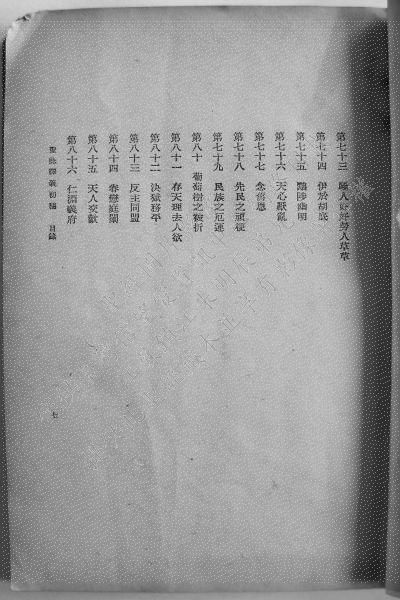 第七十三 驕人好好勞人草草
第七十四 伊於胡底
第七十五 黜陟幽明
第七十六 天心厭亂
第七十七 念舊恩
第七十八 先民之頑梗
第七十九 民族之厄運
第八十 葡萄樹之被折
第八十一 存天理去人欲
第八十二 決獄移平
第八十三 反主同盟
第八十四 春戀庭闈
第八十五 天人交歡
第八十六 仁淵義府
聖詠譯義初稿 目錄
七